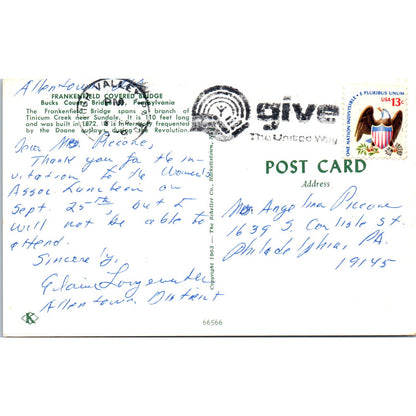 Allentown, Pa
FRANKENFIELD COVERED BRIDGE
Bucks County Bridgeton, Pennsylvania
The Frankenfield Bridge spans a branch of
Tinicum Creek near Sundale. It is 110 feet long
and was built in 1872. It is
frequented
by the Doane outlaws during the Revolution.
Dear Mrs. Piccone,
Thank you for the in-
vitation to the Women's
Assoc Luncheon on
Sept. 25th, but I
will not be able to
attend.
Sincerely,
Elaine
Allentown District
K
Copyright 1963 — The Scheller Co.
66566
VALLEY
give
The United Way
E PLURIBUS UNUM
USA 13c
ONE NATION INDIVISIBLE
POST CARD
Address
Mrs. Angelina Piccone
1639 S. Carlisle St.
Philadelphia, PA.
19145